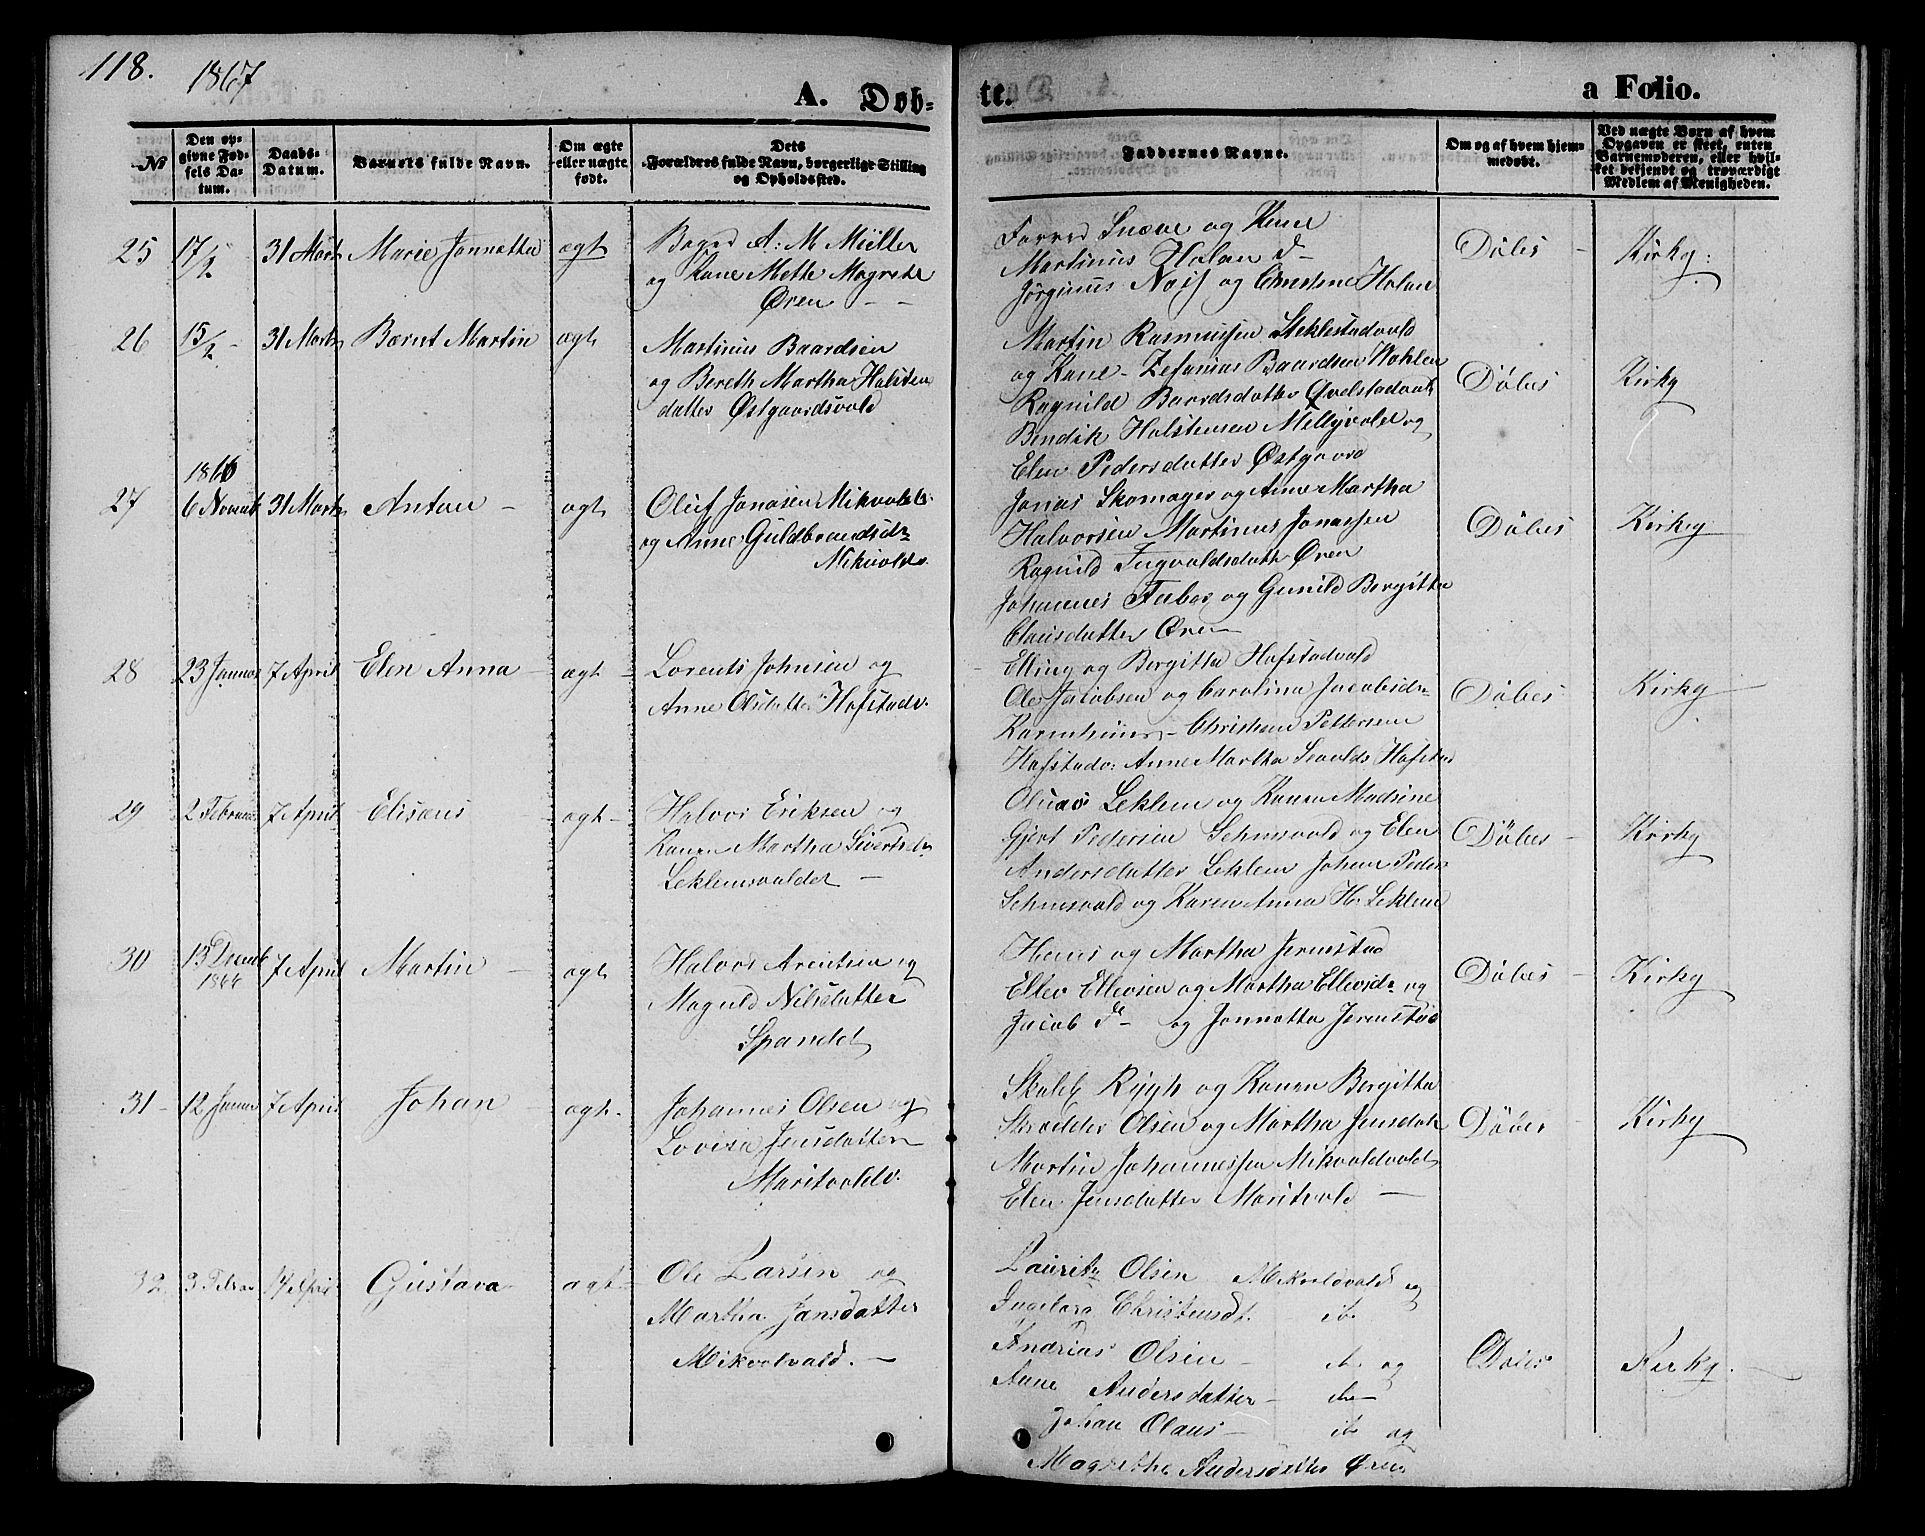 118.
1867
A. Døb-
te.
a Folio.
No
Den op-
givne Fød-
sels Da-
tum.
Daabs-
Datum.
Barnets fulde Navn.
Om ægte
eller uægte
født.
Dets
Forældres fulde Navn, borgerlige Stilling
og Opholdssted.
Faddernes Navne.
Om og af hvem hjem-
medøbt.
Ved uægte Børn af hvem
Opgaven er skeet, enten
Barnemoderen, eller hvil-
ket bekjendt og troværdigt
Medlem af Menigheden.
25 17/2 31 Marts Marie Jonnetta ægt
A: M Müller
og Kone Meth Magrete
Øren
og Kone
Martinus Holan
Jørginus og Holan
Døbes Kirky.
26 15/2 31 Marts Bærnt Martin ægt
Martinus Baardsen
og Bereth Martha Halsten
datter Østgaardsvald
Martin Rasmussen Steklestadvald
og Kone - Zefanias Baardsen Wohlen
Ragnild Baardsdatter
Bendik Halstensen og
Elen Pedersdatter Østgaard
Døbes Kirky
1866
27 6 Novemb 31 Marts Anton - ægt
Oluf Jonasen Mikvolds
og Anne Guldbrandsdr
Mikvolds.
Jonas Skomager og Anne Martha
Halvorsen Martinus Jonassen
Ragnild Ingvaldsdatt Øren
Johannes Faber og Gunild Bergitta
Clausdatter Øren
Døbes Kirky
28 23 Januar 7 April Elen Anna - ægt -
Lorents Johnsen og
Anne Olsdatter Hofstadv.
Elling og Bergitta Hofstadvald
Ole Jacobsen og Carolina Jacobsdr
- Christian Pettersen
Hofstadv: Anne Martha Hofstad
Døbes Kirky
29 2 Februar 7 April Elisæus - ægt -
Halvor Eriksen og
Karen Martha Sivertsdr
Leklemsvaldet -
Leklem og Karen Madsine
Gjert Pedersen Semsvald og Elen
Andersdatter Leklem Johan Peder
Semsvald og Karen Anna H. Leklem
Døbes - Kirky
30 13 Decemb 7 April Martin - ægt
1866
Halvor Arentsen og
Magnild Nilsdatter
Spandet
og Martha Jermstad
Ellev Ellevsen og Martha Ellevsdr og
Jacob Do - og Jonnetta Jermstad
Døbes - Kirky
31 - 12 Januar 7 April Johan - ægt -
Johannes Olsen og
Lovisa Jensdatter
Maritvolds.
Rygh og Karen Bergitta
Skrædder Olsen og Martha Jensdatt
Martin Johannessen Mikvoldvald
Elen Jensdatter Maritvold -
Døbes Kirky
32 3 Februar 14 April Gustava ægt -
Ole Larsen og
Martha Jansdatter
Mikvolvald. -
Lauritz Olsen Mikvoldvald og
Ingebora Christensdt. - ib.
Andrias Olsen - ib og
Anne Andersdatter - ib -
Johan Olaus - ib og
Magrethe Andersdatter Øren
Døbes Kirky. -